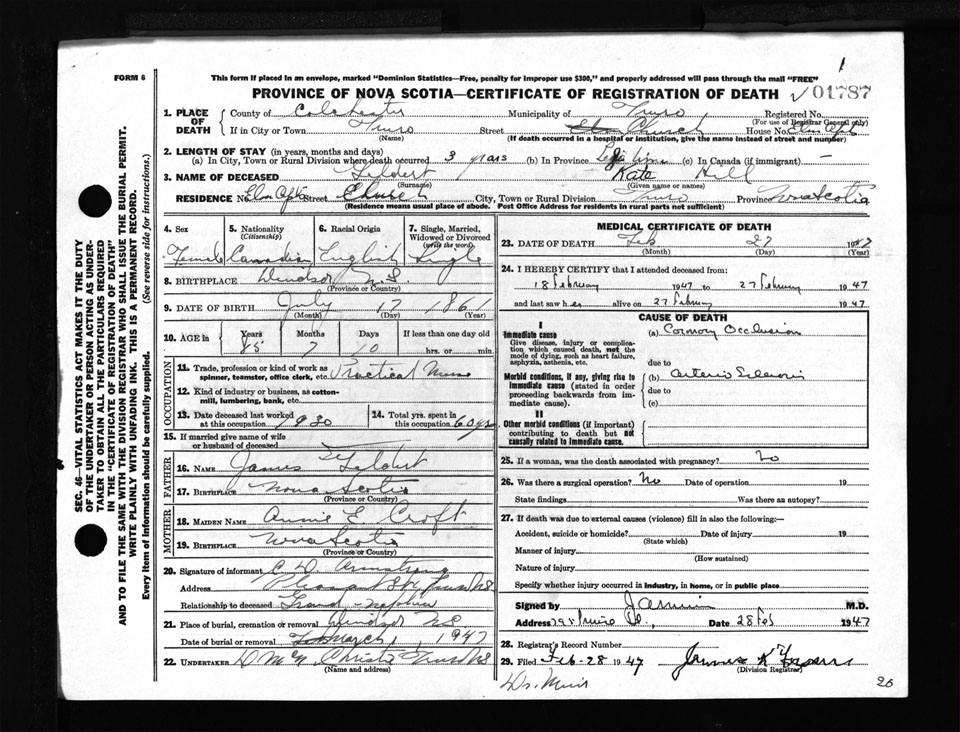 1
FORM 6
This form if placed in an envelope, marked "Dominion Statistics—Free, penalty for improper use $300," and properly addressed will pass through the mail "FREE"
PROVINCE OF NOVA SCOTIA—CERTIFICATE OF REGISTRATION OF DEATH
01787
1. PLACE OF DEATH
County of Colchester Municipality of Truro Registered No.
(For use of Registrar General only)
If in City or Town Truro Street Church House No. Elm Apts
(Name) (If death occurred in a hospital or institution, give name instead of street and number)
2. LENGTH OF STAY (in years, months and days)
(a) In City, Town or Rural Division where death occurred 3 years (b) In Province Life time (c) In Canada (if immigrant) —
3. NAME OF DECEASED Kate Hill
(Surname) (Given name or names)
RESIDENCE No. Elm Apts Street Church City, Town or Rural Division Truro Province Nova Scotia
(Residence means usual place of abode. Post Office Address for residents in rural parts not sufficient)
4. Sex 5. Nationality (Citizenship) 6. Racial Origin 7. Single, Married, Widowed or Divorced (write the word)
Female Canadian English Single
8. BIRTHPLACE Windsor N.S.
(Province or Country)
9. DATE OF BIRTH July 17 1861
(Month) (Day) (Year)
10. AGE in Years Months Days If less than one day old
85 7 10 hrs. or min.
OCCUPATION
11. Trade, profession or kind of work as spinner, teamster, office clerk, etc. Practical Nurse
12. Kind of industry or business, as cotton-mill, lumbering, bank, etc.
13. Date deceased last worked at this occupation 1930
14. Total yrs. spent in this occupation 60 yrs
15. If married give name of wife or husband of deceased
FATHER
16. NAME James
17. BIRTHPLACE Nova Scotia
(Province or Country)
MOTHER
18. MAIDEN NAME Annie E Croft
19. BIRTHPLACE Nova Scotia
(Province or Country)
20. Signature of informant C. D. Armstrong
Address Pleasant St Truro N.S.
Relationship to deceased Grand-nephew
21. Place of burial, cremation or removal Windsor N.S.
Date of burial or removal March 1, 1947
22. UNDERTAKER Christie Truro N.S
(Name and address)
MEDICAL CERTIFICATE OF DEATH
23. DATE OF DEATH Feb 27 1947
(Month) (Day) (Year)
24. I HEREBY CERTIFY that I attended deceased from:
18 February 1947 to 27 February 1947
and last saw her alive on 27 February 1947
CAUSE OF DEATH
I
Immediate cause
Give disease, injury or complication which caused death, not the mode of dying, such as heart failure, asphyxia, asthenia, etc.
(a) Coronary Occlusion
due to
Morbid conditions, if any, giving rise to immediate cause (stated in order proceeding backwards from immediate cause).
(b) Arterio Sclerosis
due to
(c)
II
Other morbid conditions (if important) contributing to death but not causally related to immediate cause.
25. If a woman, was the death associated with pregnancy? No
26. Was there a surgical operation? No Date of operation 19
State findings Was there an autopsy?
27. If death was due to external causes (violence) fill in also the following:—
Accident, suicide or homicide? Date of injury 19
(State which)
Manner of injury
(How sustained)
Nature of injury
Specify whether injury occurred in industry, in home, or in public place
Signed by M.D.
Address Date 28 Feb 1947
28. Registrar's Record Number
29. Filed Feb-28 1947 James K
(Division Registrar)
Dr. Muir
20
SEC. 46—VITAL STATISTICS ACT MAKES IT THE DUTY
OF THE UNDERTAKER OR PERSON ACTING AS UNDER-
TAKER TO OBTAIN ALL THE PARTICULARS REQUIRED
IN THE "CERTIFICATE OF REGISTRATION OF DEATH"
AND TO FILE THE SAME WITH THE DIVISION REGISTRAR WHO SHALL ISSUE THE BURIAL PERMIT.
WRITE PLAINLY WITH UNFADING INK. THIS IS A PERMANENT RECORD.
Every item of information should be carefully supplied. (See reverse side for instructions.)